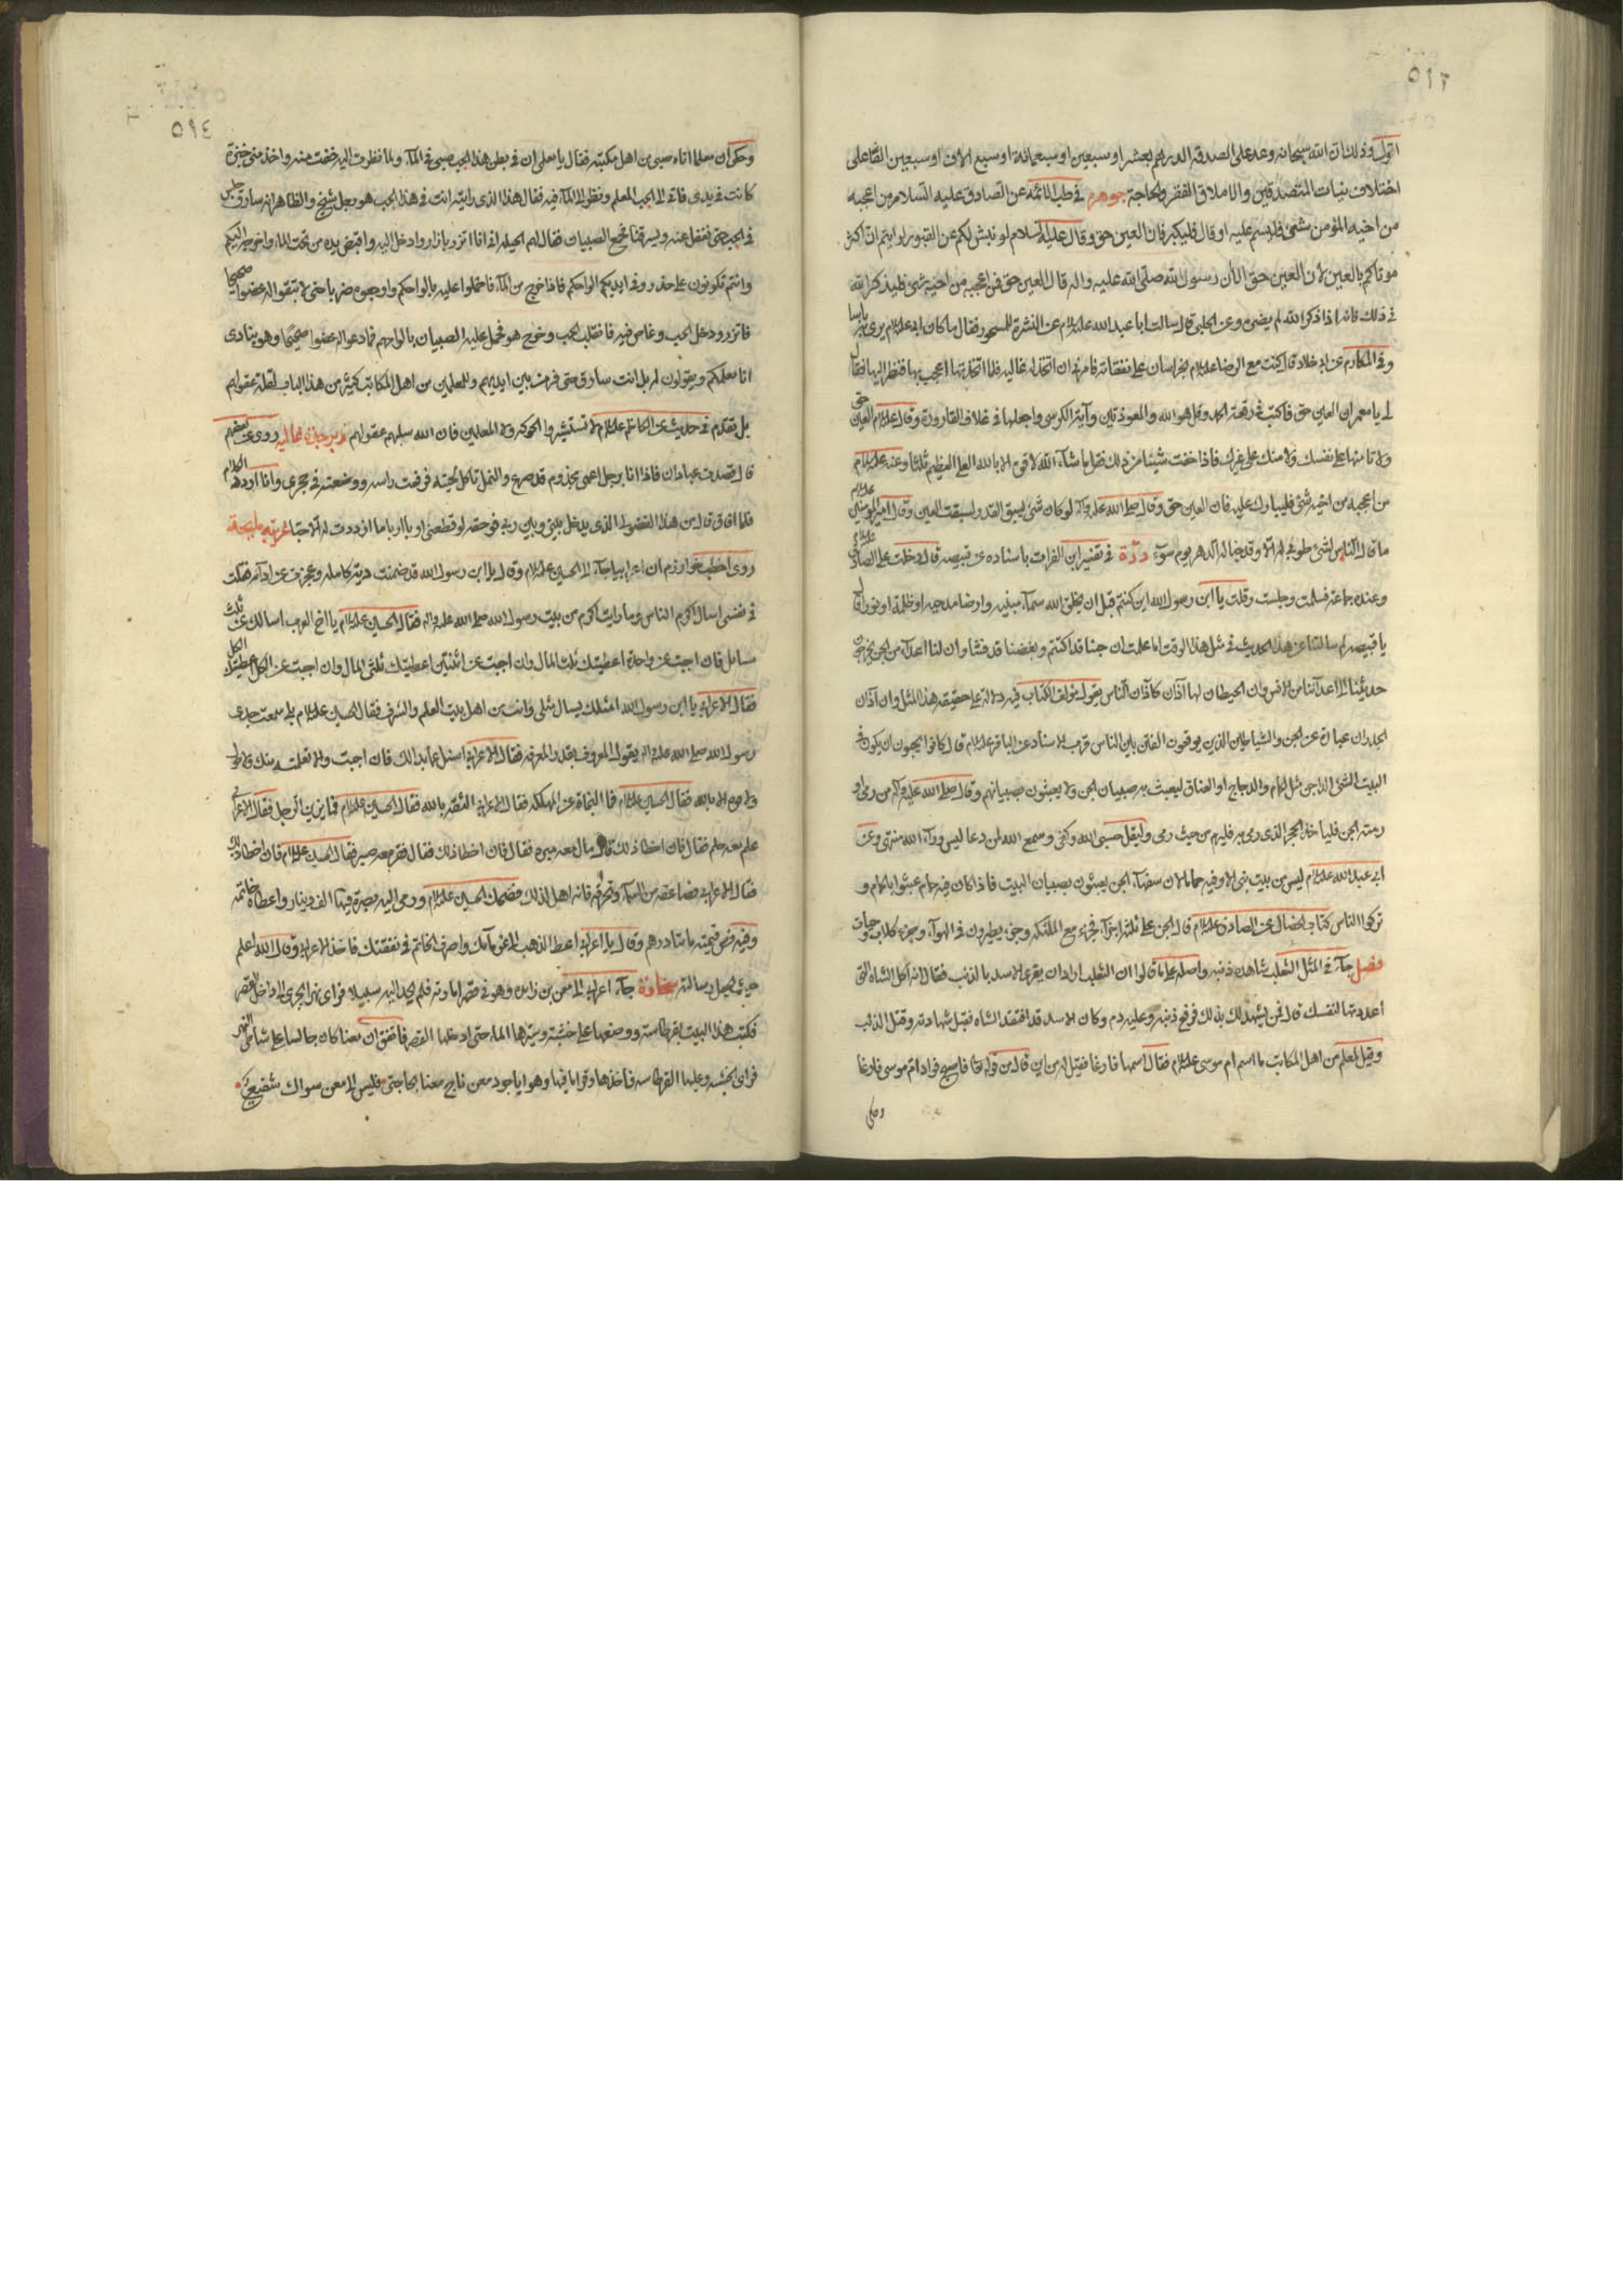 ٥٩٣
اقول وذلك ان الله سبحانه وعد على الصدقة الدرهم بعشر او سبعين او سبعمائة او سبع الاف او سبعين الفا على
اختلاف نيات المتصدقين والاملاق الفقر والحاجة جوهر في طب الائمة عن الصادق عليه السلام من اعجبه
من اخيه المؤمن شئ فليسم عليه او قال فليكبر فان العين حق وقال عليه السلام لو نبش لكم عن القبور لرايتم ان اكثر
موتاكم بالعين لان العين حق الا ان رسول الله صلى الله عليه واله قال العين حق فمن اعجبه من اخيه شئ فليذكر الله
في ذلك فانه اذا ذكر الله لم يضره وعن الحلبي قال سالت ابا عبد الله عليه السلام عن النشرة للمسحور فقال ما كان ابي عليه السلام يرى به باسا
وفي المكارم عن ابن خلاد قال كنت مع الرضا عليه السلام بخراسان على نفقاته فامرني ان اتخذ له غالية فلما اتخذتها اعجب بها فنظر اليها فقال
لي يا معمر ان العين حق فاكتب في رقعة الحمد وقل هو الله والمعوذتين وآية الكرسي واجعلها في غلاف القارورة وقال عليه السلام العين حق
ولا تامنها على نفسك ولا منك على غيرك فاذا خفت شيئا من ذلك فقل ما شاء الله لا قوة الا بالله العلي العظيم ثلثا وعنه عليه السلام
من اعجبه من اخيه شئ فليبارك عليه فان العين حق وقال صلى الله عليه وآله لو كان شئ يسبق القدر لسبقت العين وقال امير المؤمنين عليه السلام
ما قال الناس لشئ طوبى له الا وقد خبا له الدهر يوم سوء درّة في تفسير ابن الفرات باسناده عن قبيصة قال دخلت على الصادق عليه السلام
وعنده جماعة فسلمت وجلست وقلت يا ابن رسول الله اين كنتم قبل ان يخلق الله سماء مبنية وارضا مدحية او ظلمة او نورا قال
يا قبيصة لم سالتنا عن هذا الحديث في مثل هذا الوقت اما علمت ان حبنا قد اكتتم وبغضنا قد فشا وان لنا اعداء من الجن يخرجون
حديثنا الى اعدائنا من الانس وان الحيطان لها آذان كآذان الناس يقول مؤلف الكتاب فيه دلالة على حقيقة هذا المثل وان آذان
الجدران عبارة عن الجن والشياطين الذين يوقعون الفتن بين الناس قرب الاسناد عن الباقر عليه السلام قال كانوا يحبون ان يكون في
البيت الشئ الداجن مثل الحمام والدجاج او العناق ليعبث به صبيان الجن ولا يعبثون بصبيانهم وقال صلى الله عليه وآله من رمى او
رمته الجن فلياخذ الحجر الذى رمى به فليرم من حيث رمى وليقل حسبي الله وكفى وسمع الله لمن دعا ليس وراء الله منتهى وعن
ابي عبد الله عليه السلام ليس من بيت نبي الا وفيه حمام لان سفهاء الجن يعبثون بصبيان البيت فاذا كان فيه حمام عبثوا بالحمام و
تركوا الناس كتاب الخصال عن الصادق عليه السلام قال الجن على ثلثة اجزاء فجزء مع الملئكة وجزء يطيرون في الهواء وجزء كلاب وحيات
فصل جاء في المثل الثعلب شاهده ذنبه واصله على ما قالوا ان الثعلب اراد ان يغري الاسد بالذئب فقال انه اكل الشاه التي
اعددتها لنفسك قال فمن يشهد لك بذلك فرفع ذنبه وعليه دم وكان الاسد قد افتقد الشاه فقبل شهادته وقتل الذئب
وقيل لمعلم من اهل المكاتب ما اسم ام موسى عليه السلام فقال اسمها فارغا فقيل له من اين قال من قوله تعا فاصبح فواد ام موسى فارغا
وحكى
٥٩٤
وحكى ان معلما اتاه صبي من اهل مكتبه فقال يا معلم ان في بطن هذا الحب صبي في الماء ولما نظرت اليه خفت منه واخذ مني خبزة
كانت في يدى فاتى الى الحب المعلم ونظر الى الماء فيه فقال هذا الذى رايته انت في هذا الحب هو رجل شيخ والظاهر انه سارق جلس
في الحب حتى نغفل عنه ويسرقنا فجمع الصبيان فقال لهم الحيلة انى انا اتزر بازار وادخل اليه واقبض يده من تحت الماء واخرجه اليكم
وانتم تكونون على حذر وفي ايديكم الواحكم فاذا خرج من الماء فاحملوا عليه بالواحكم واوجعوه ضربا حتى لا تبقوا له عضوا صحيحا
فاتزر ودخل الحب وغاص فيه فانقلب الحب وخرج هو فحمل عليه الصبيان بالواحهم فما دعوا له عضوا صحيحا وهو ينادى
انا معلمكم ويقولون له بل انت سارق حتى فر من بين ايديهم وللمعلمين من اهل المكاتب كثير من هذا الباب لقلة عقولهم
بل تقدم في حديث عن الكاظم عليه السلام لا تستشيروا الحوكة ولا المعلمين فان الله سلبهم عقولهم زبرجدة غالية روى عن بعضهم
قال قصدت عبادان فاذا انا برجل اعمى مجذوم قد صرع والنمل تاكل لحيته فرفعت راسه ووضعته في حجرى وانا اردد الكلام
فلما افاق قال من هذا الفضولي الذى يدخل بيني وبين ربي فوحقه لو قطعني اربا اربا ما ازددت له الا حبا غريبة مليحة
روى اخطب خوارزم ان اعرابيا جاء الى الحسين عليه السلام وقال يا ابن رسول الله قد ضمنت دية كاملة وعجزت عن ادائه فقلت
في نفسى اسال اكرم الناس وما رايت اكرم من بيت رسول الله صلى الله عليه واله فقال الحسين عليه السلام يا اخ العرب اسالك عن ثلث
مسائل فان اجبت عن واحدة اعطيتك ثلث المال وان اجبت عن اثنتين اعطيتك ثلثى المال وان اجبت عن الكل اعطيتك الكل
فقال الاعرابي يا ابن رسول الله امثلك يسال مثلي وانت من اهل بيت العلم والشرف فقال الحسين عليه السلام بلى سمعت جدى
رسول الله صلى الله عليه واله يقول المعروف بقدر المعرفة فقال الاعرابي اسئل عما بدا لك فان اجبت والا تعلمت منك ولا حول
ولا قوة الا بالله فقال الحسين عليه السلام فما النجاة عن المهلكة فقال الاعرابي الثقة بالله فقال الحسين عليه السلام فما يزين الرجل فقال الاعرابي
علم معه حلم فقال فان اخطا ذلك قال مال معه مروة فقال فان اخطا ذلك فقال فقر معه صبر فقال الحسين عليه السلام فان اخطا ذلك
فقال الاعرابي فصاعقة من السماء وتحرقه فانه اهل لذلك فضحك الحسين عليه السلام ورمى اليه بصرة فيها الف دينار واعطاه خاتمه
وفيه فص قيمته مائتا درهم وقال يا اعرابي اعط الذهب الى غرمائك واصرف الخاتم في نفقتك فاخذ الاعرابي وقال الله اعلم
حيث يجعل رسالته سخاوة جاء اعرابي الى معن بن زائده وهو في قصر امارته فلم يجد اليه سبيلا فراى نهرا يجرى الى داخل القصر
فكتب هذا البيت بقرطاسة ووضعها على خشبة وسيرها الماء حتى ادخلها القصر فاتفق ان معنا كان جالسا على شاطئ النهر
فراى الخشبه وعليها القرطاسه فاخذها وقرا ما فيها وهو ايا جود معن ناج معنا بحاجتي فليس الى معن سواك شفيع